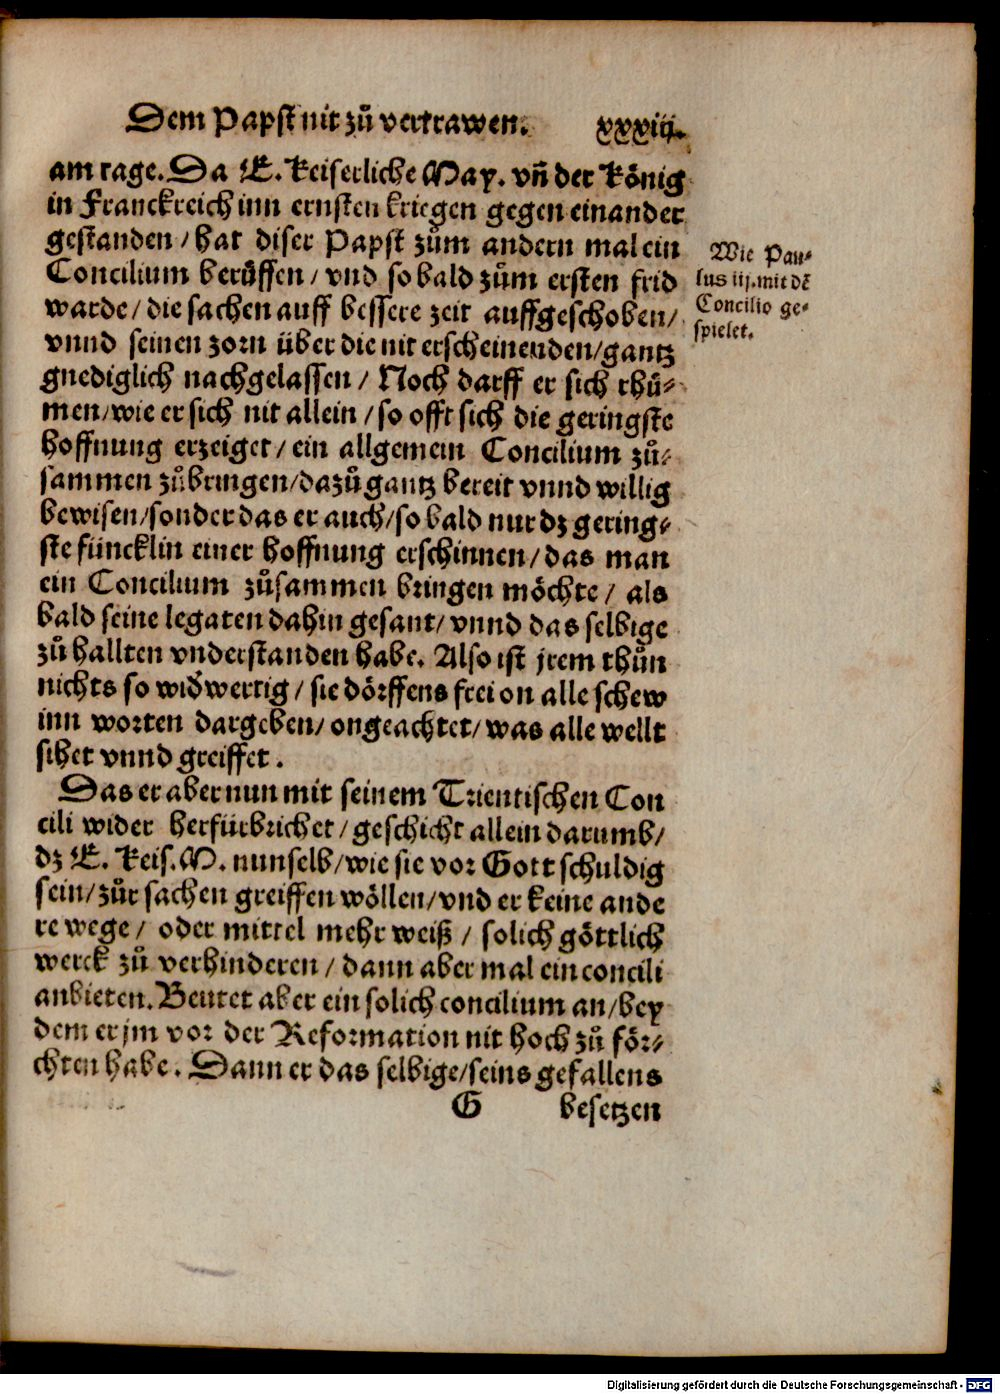 Dem Papst nit zů vertrawen. xxxiij.
am tage. Da E. Keiserliche May. vñ der König
in Franckreich inn ernsten kriegen gegen einander
gestanden / hat diser Papst zům andern mal ein
Concilium berůffen / vnd so bald zům ersten frid
warde / die sachen auff bessere zeit auffgeschoben /
vnnd seinen zorn über die nit erscheinenden / gantz
gnediglich nachgelassen / Noch darff er sich rhů-
men / wie er sich nit allein / so offt sich die geringste
hoffnung erzeiget / ein allgemein Concilium zů-
sammen zůbringen / dazů gantz bereit vnnd willig
bewisen / sonder das er auch / so bald nur dz gering-
ste füncklin einer hoffnung erschinnen / das man
ein Concilium zůsammen bringen möchte / als
bald seine legaten dahin gesant / vnnd das selbige
zů hallten vnderstanden habe. Also ist jrem thůn
nichts so widwertig / sie dörffens frei on alle schew
inn worten dargeben / ongeachtet / was alle wellt
sihet vnnd greiffet.
Wie Pau-
lus iij. mit dē
Concilio ge-
spielet.
Das er aber nun mit seinem Trientischen Con
cili wider herfürbrichet / geschicht allein darumb /
dz E. Keis. M. nun selb / wie sie vor Gott schuldig
sein / zůr sachen greiffen wöllen / vnd er keine ande
re wege / oder mittel mehr weiß / solich göttlich
werck zů verhinderen / dann aber mal ein concili
anbieten. Beutet aber ein solich concilium an / bey
dem er jm vor der Reformation nit hoch zů för-
chten habe. Dann er das selbige / seins gefallens
G besetzen
Digitalisierung gefördert durch die Deutsche Forschungsgemeinschaft - DFG